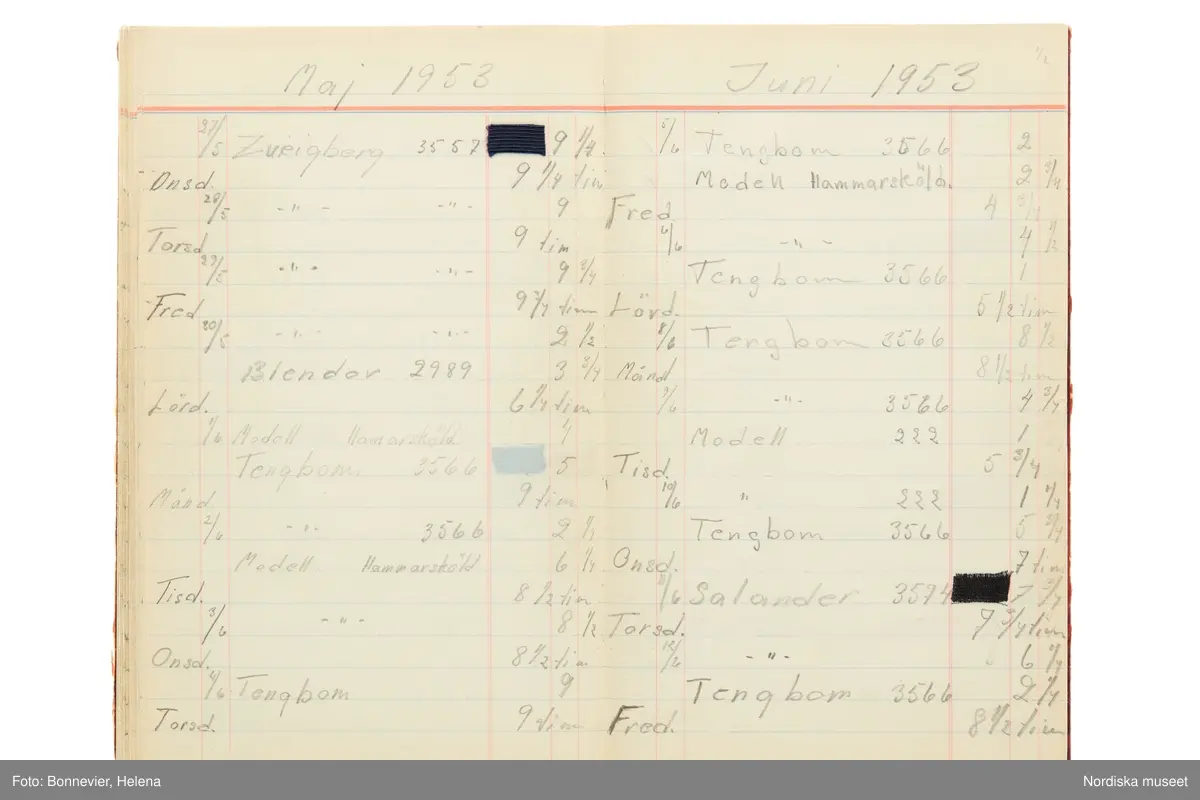 Maj 1953
27/5 Zveigberg 3557 9 1/4
Onsd. 9 1/4 tim
28/5 -"- -"- 9
Torsd 9 tim
29/5 -"- -"- 9 3/4
Fred 9 3/4 tim
30/5 -"- -"- 2 1/2
Blender 2989 3 3/4
Lörd. 6 1/4 tim
1/6 Modell Hammarsköld 4
Tengbom 3566 5
Månd. 9 tim
2/6 -"- 3566 2 1/4
Modell Hammarsköld 6 1/4
Tisd. 8 1/2 tim
3/6 -"- 8 1/2
Onsd. 8 1/2 tim
4/6 Tengbom 9
Torsd. 9 tim
1/2
Juni 1953
5/6 Tengbom 3566 2
Modell Hammarsköld. 2 3/4
Fred. 4 3/4
6/6 -"- 4 1/2
Tengbom 3566 1
Lörd. 5 1/2 tim
8/6 Tengbom 3566 8 1/2
Månd 8 1/2 tim
9/6 -"- 3566 4 3/4
Modell 222 1
Tisd. 5 3/4
10/6 " 222 1 1/4
Tengbom 3566 5 3/4
Onsd. 7 tim
11/6 Salander 3574 7 3/4
Torsd. 7 3/4 tim
12/6 -"- 6 1/4
Tengbom 3566 2 1/4
Fred. 8 1/2 tim
Foto: Bonnevier, Helena
Nordiska museet